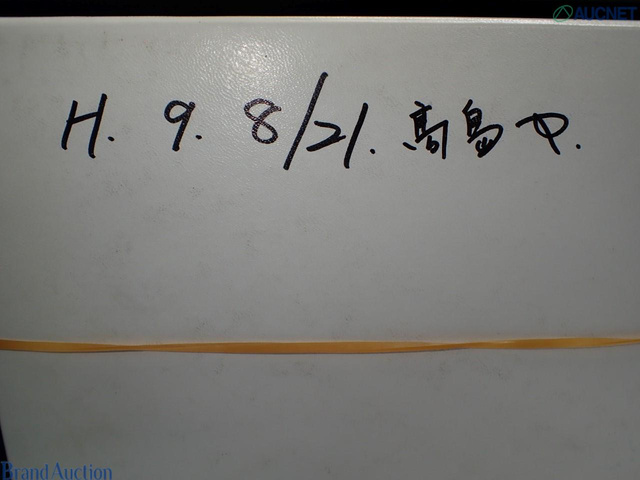 AUCNET
H. 9. 8/21. 高島
Brand Auction